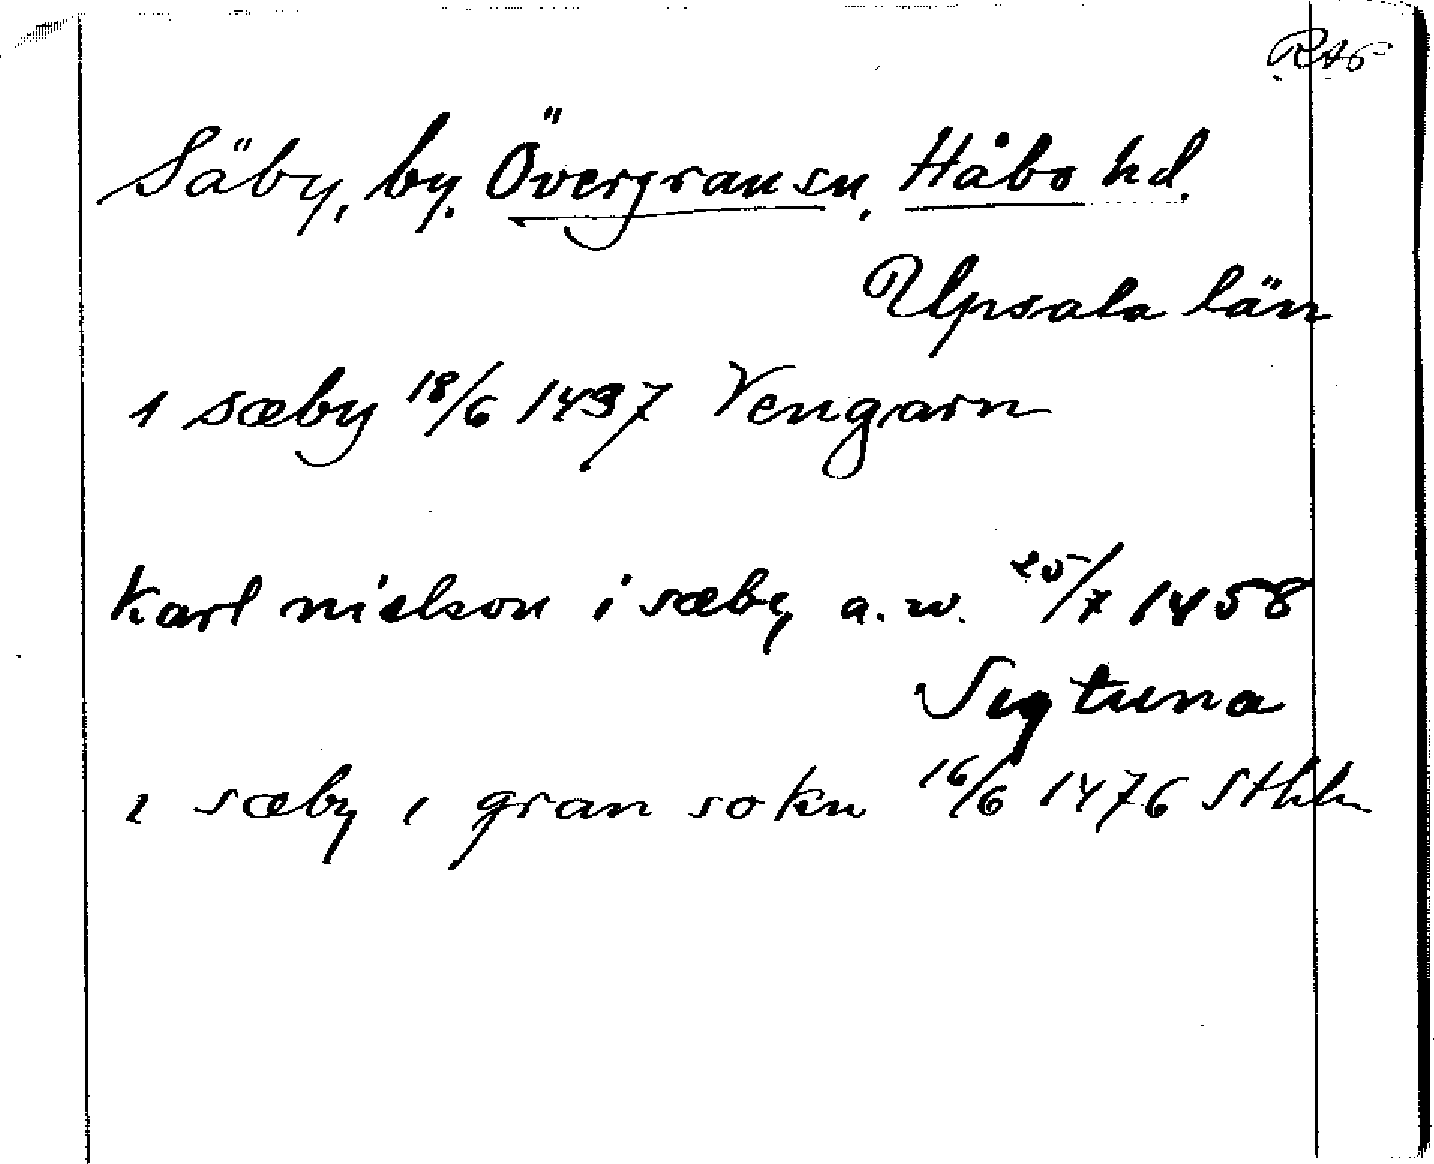 RAP
Säby, by. Övergran sn, Håbo hd.
Upsala län
i sæby 18/6 1437 Vengarn
karl nielson i sæby a. w. 25/7 1458
Sigtuna
i sæby i gran sokn 16/6 1476 Sthlm